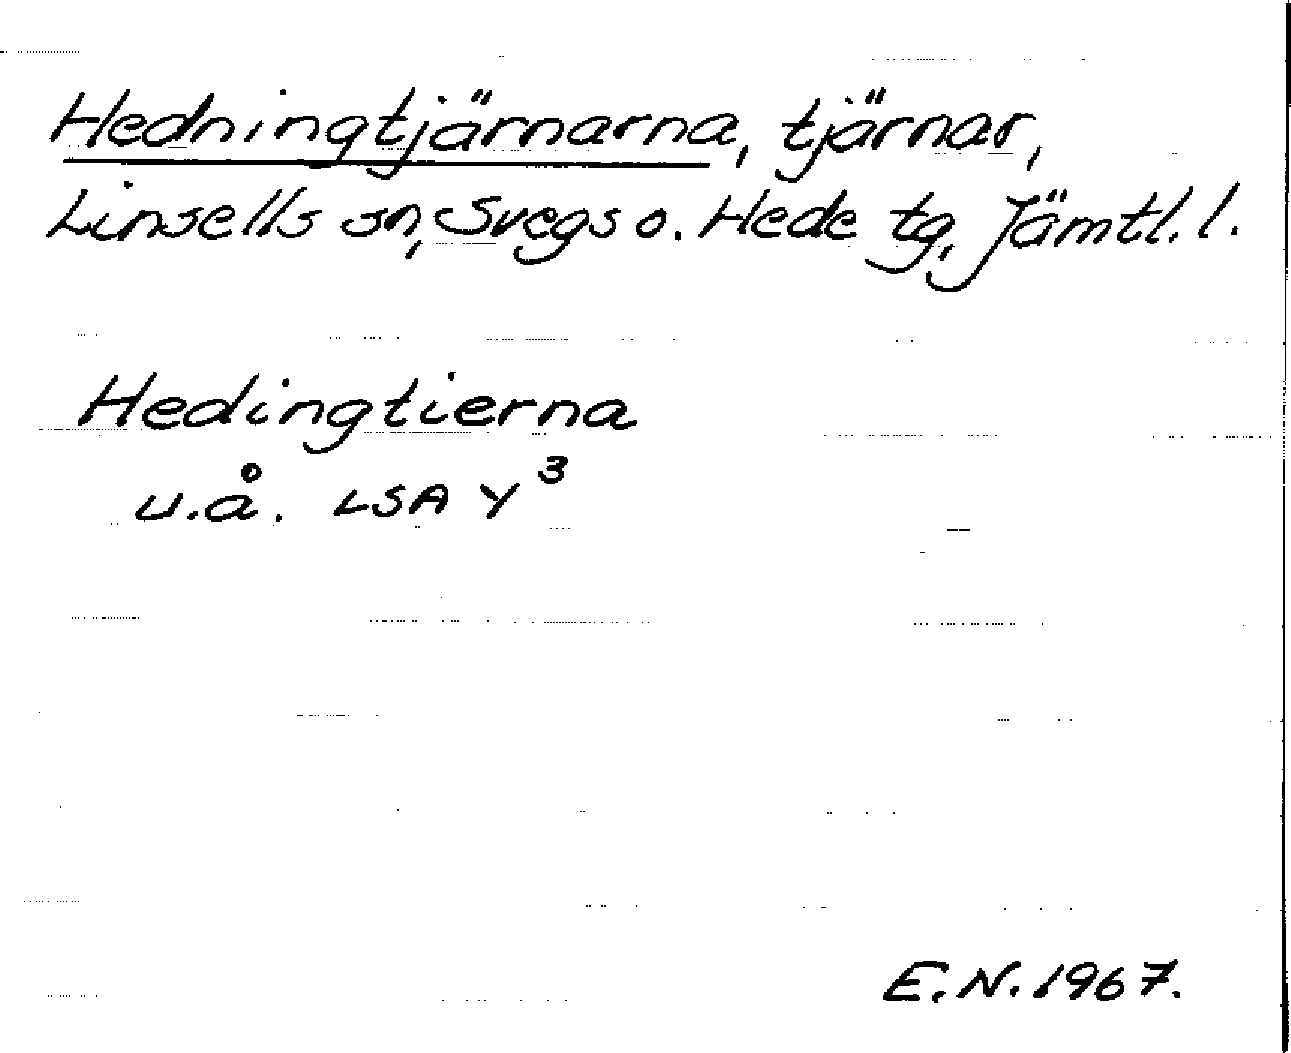 Hedningtjärnarna, tjärnar,
Linsells sn, Svegs o. Hede tg, Jämtl. l.
Hedingtierna
u.å. LSA Y³
E.N. 1967.